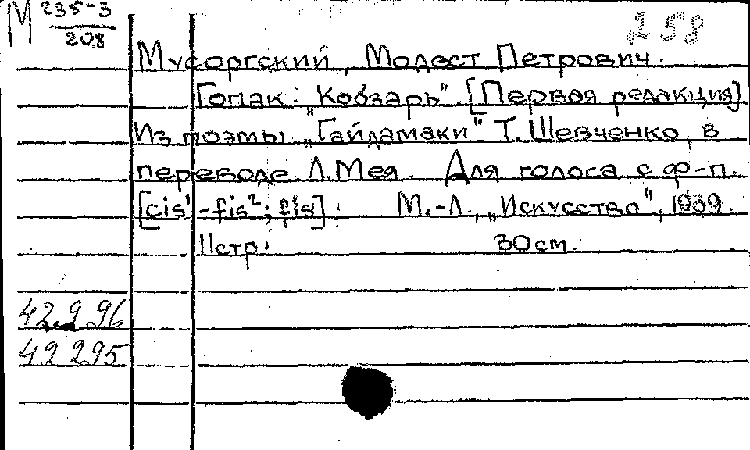 М 235-3
208
258
Мусоргский, Модест Петрович.
Гопак: „Кобзарь". [Первая редакция]
Из поэмы „Гайдамаки" Т. Шевченко, в
переводе Л. Мея. Для голоса с ф-п.
[cis¹-fis²; fis]. М.-Л., „Искусство", 1939.
11стр. 30см.
42 9 96
42 295